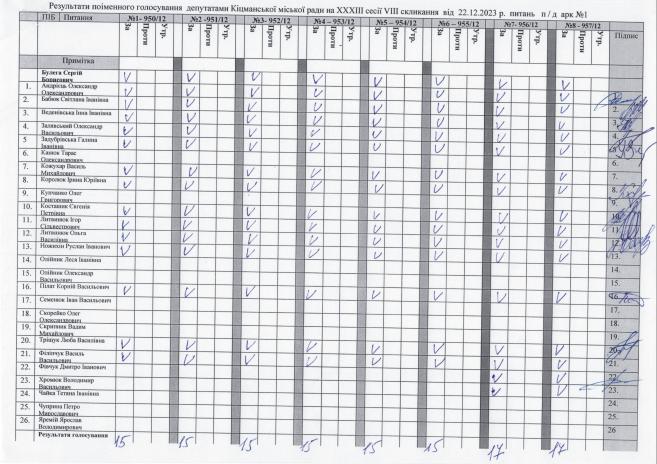 Результати поіменного голосування депутатами Кіцманської міської ради на XXXIII сесії VIII скликання від 22.12.2023 р. питань п / д арк №1
ПІБ Питання №1- 950/12 №2 -951/12 №3- 952/12 №4 – 953/12 №5 – 954/12 №6 – 955/12 №7- 956/12 №8 - 957/12 Підпис
За Проти Утр. За Проти Утр. За Проти Утр. За Проти Утр. За Проти Утр. За Проти Утр. За Проти Утр. За Проти Утр.
Примітка
Булега Сергій Борисович V V V V V V V V
1. Андрієць Олександр Олександрович V V V V V V V V
2. Бабюк Світлана Іванівна V V V V V V V V 2.
3. Веденівська Інна Іванівна V V V V V V V V 3.
4. Залявський Олександр Васильович V V V V V V V V 4.
5 Задубрівська Галина Іванівна V V V V V V V V 5.
6. Канюк Тарас Олександрович 6.
7. Кожухар Василь Михайлович V V V V V V V V 7.
8. Королюк Ірина Юріївна V V V V V V V V 8.
9. Купчанко Олег Григорович 9.
10. Костащук Євгенія Петрівна V V V V V V V V 10.
11. Литвинюк Ігор Сільвестрович V V V V V V V V 11.
12. Литвинюк Ольга Василівна V V V V V V V V 12.
13. Ножихін Руслан Іванович V V V V V V V V 13.
14. Олійник Леся Іванівна 14.
15. Олійник Олександр Васильович 15.
16. Пілат Корній Васильович V V V V V V V V 16.
17. Семенюк Іван Васильович 17.
18. Скорейко Олег Олександрович 18.
19. Скрипник Вадим Михайлович 19.
20. Тріщук Люба Василівна V V V V V V V V 20.
21. Філіпчук Василь Васильович V V V V V V V V 21.
22. Фрачук Дмитро Іванович V V 22.
23. Хромюк Володимир Васильович V V 23.
24. Чайка Тетяна Іванівна 24.
25. Чуприна Петро Мирославович 25.
26. Яремій Ярослав Володимирович 26
Результати голосування 15 15 15 15 15 15 17 17